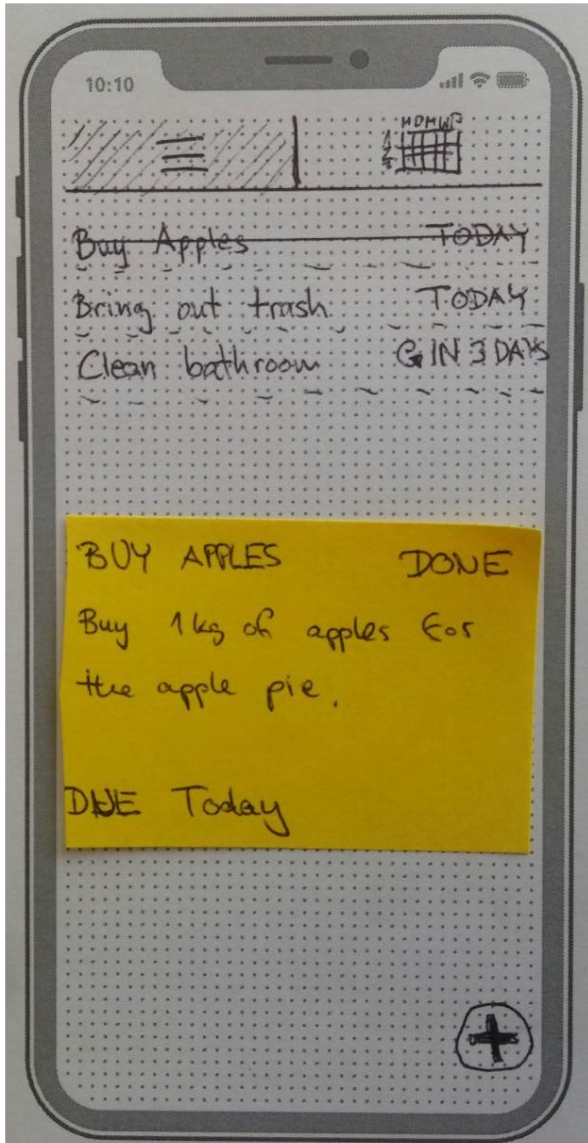 10:10
Buy Apples TODAY
Bring out trash TODAY
Clean bathroom IN 3 DAYS
BUY APPLES DONE
Buy 1kg of apples for
the apple pie.
DUE Today